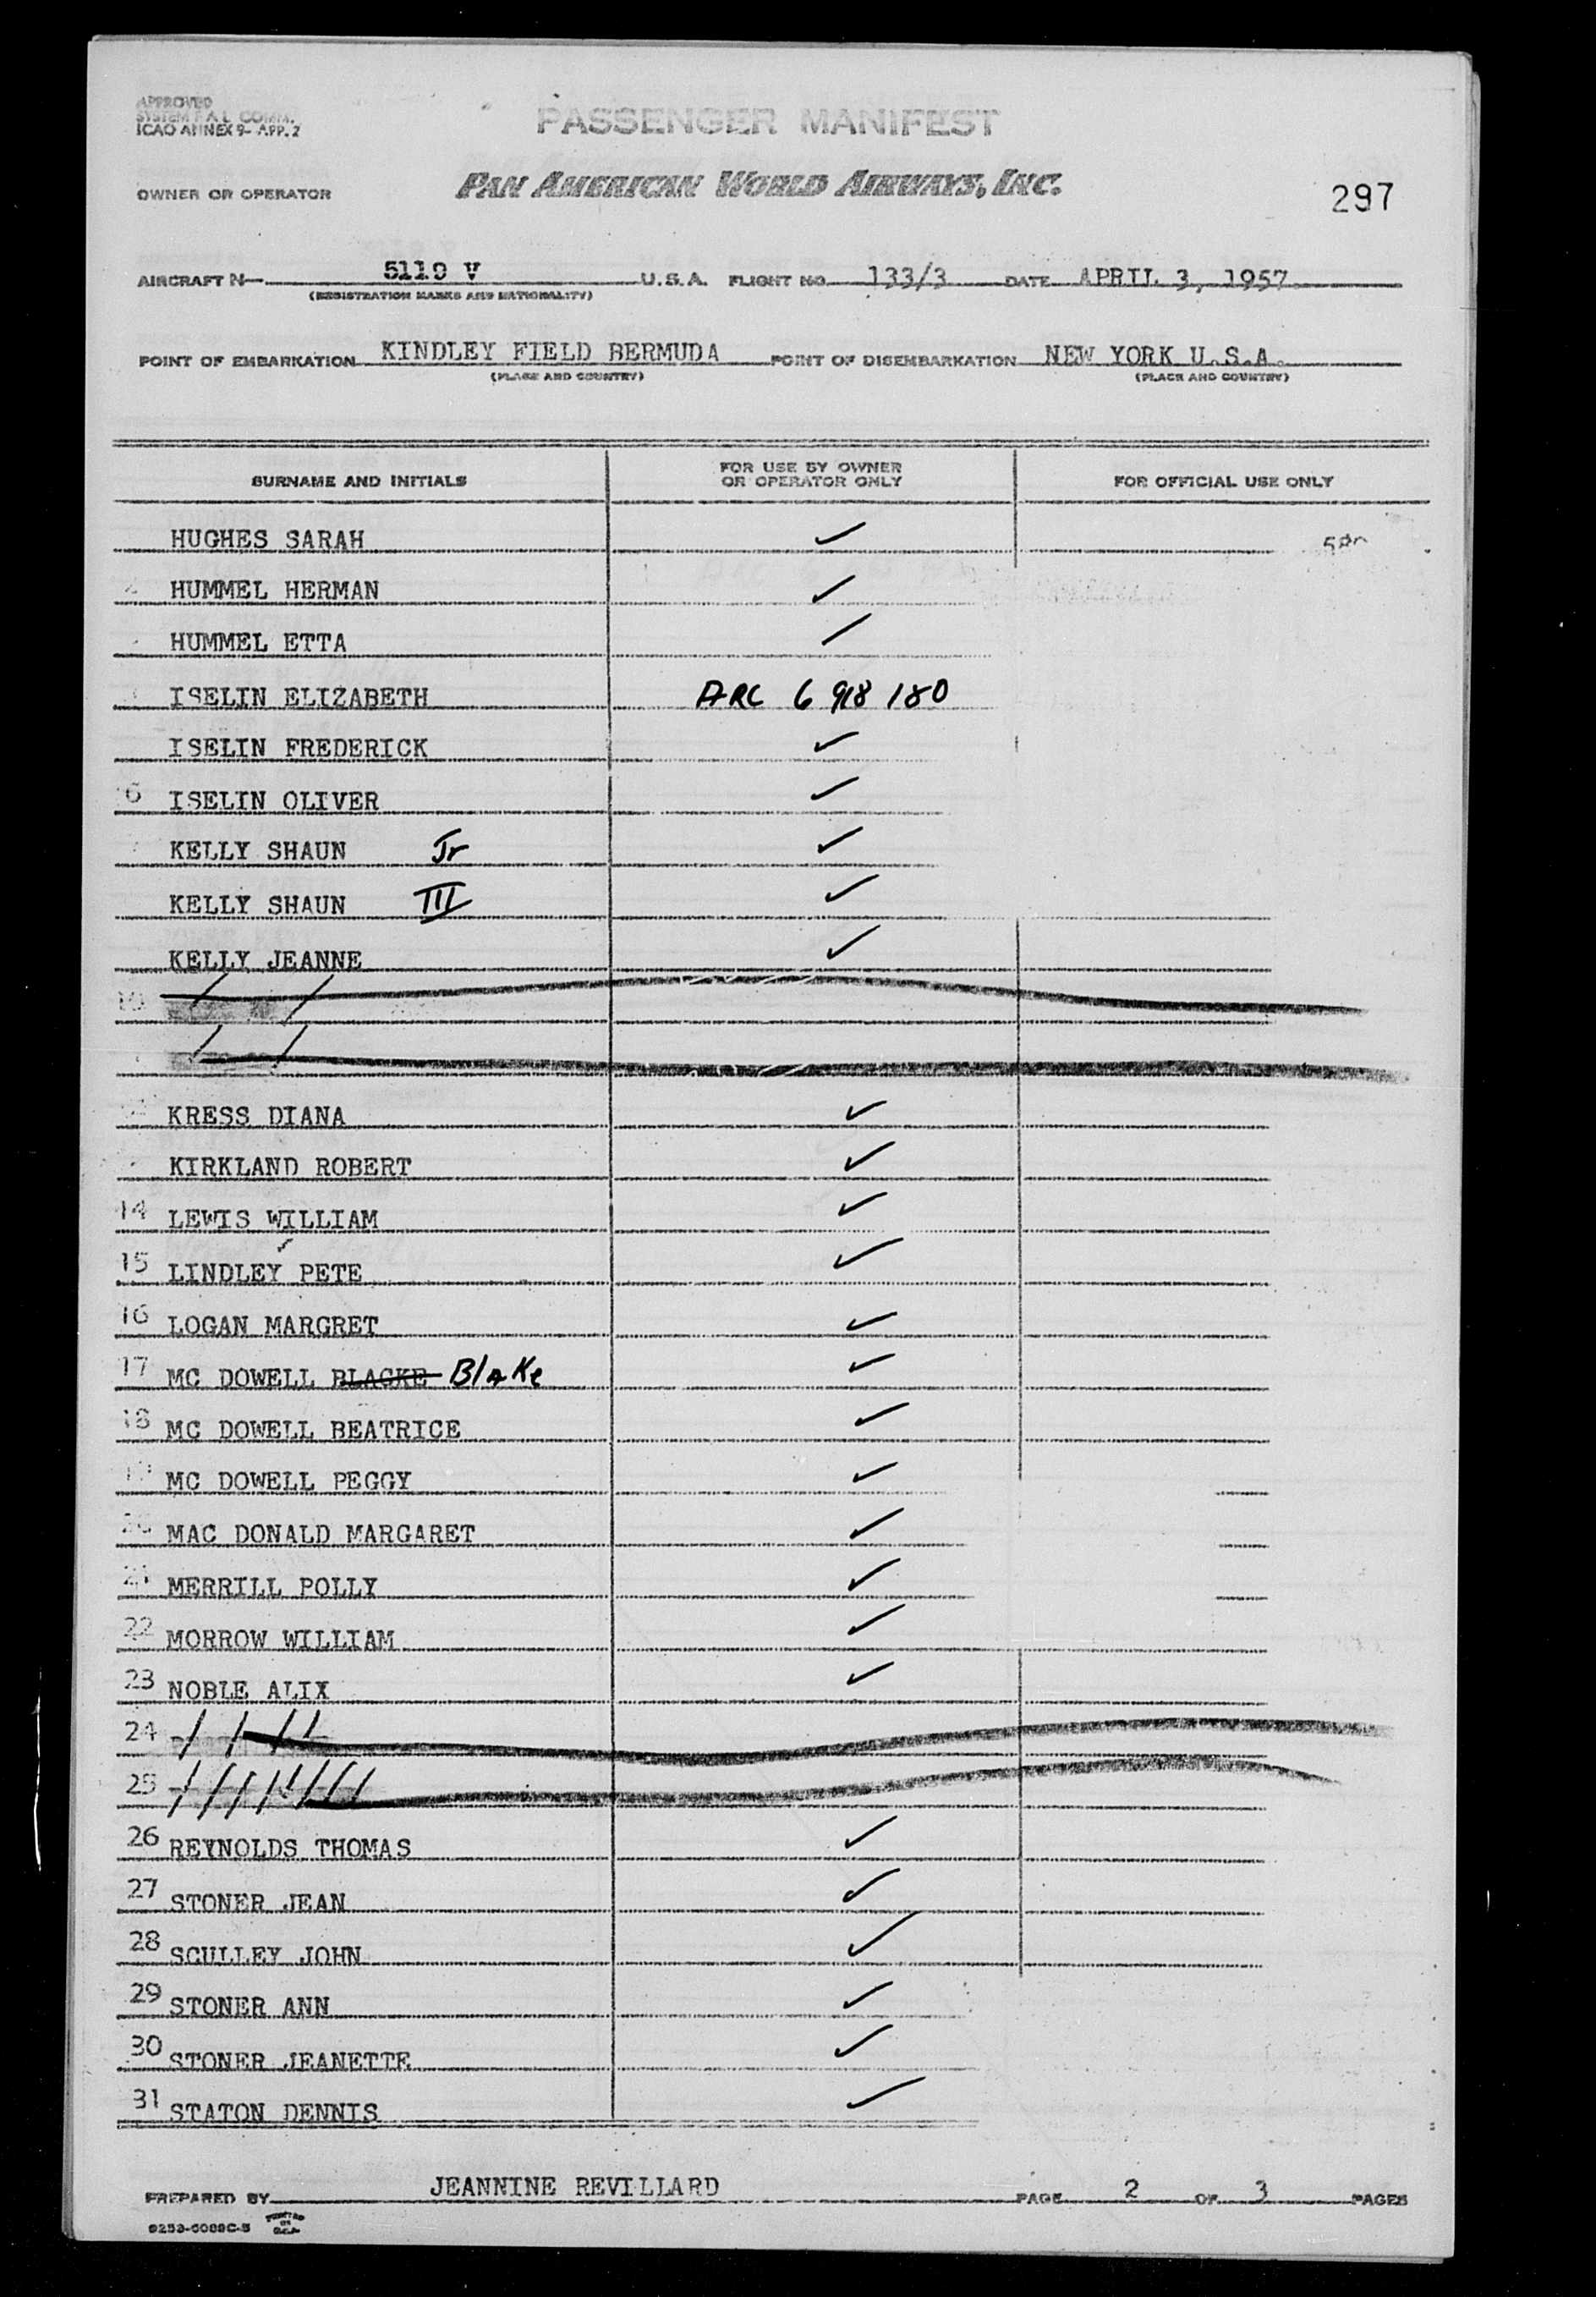 APPROVED
SYSTEM F A L COMM.
ICAO ANNEX 9- APP. 2
PASSENGER MANIFEST
OWNER OR OPERATOR PAN AMERICAN WORLD AIRWAYS, INC.
297
AIRCRAFT N- 5119 V U.S.A. FLIGHT NO. 133/3 DATE APRIL 3, 1957
(REGISTRATION MARKS AND NATIONALITY)
POINT OF EMBARKATION KINDLEY FIELD BERMUDA POINT OF DISEMBARKATION NEW YORK U.S.A.
(PLACE AND COUNTRY) (PLACE AND COUNTRY)
SURNAME AND INITIALS FOR USE BY OWNER OR OPERATOR ONLY FOR OFFICIAL USE ONLY
HUGHES SARAH ✓
HUMMEL HERMAN ✓
HUMMEL ETTA ✓
ISELIN ELIZABETH ARC 6 918 180
ISELIN FREDERICK ✓
6 ISELIN OLIVER ✓
KELLY SHAUN Jr ✓
KELLY SHAUN III ✓
KELLY JEANNE ✓
10
KRESS DIANA ✓
KIRKLAND ROBERT ✓
14 LEWIS WILLIAM ✓
15 LINDLEY PETE ✓
16 LOGAN MARGRET ✓
17 MC DOWELL BLACKE Blake ✓
18 MC DOWELL BEATRICE ✓
19 MC DOWELL PEGGY ✓
20 MAC DONALD MARGARET ✓
21 MERRILL POLLY ✓
22 MORROW WILLIAM ✓
23 NOBLE ALIX ✓
24
25
26 REYNOLDS THOMAS ✓
27 STONER JEAN ✓
28 SCULLEY JOHN ✓
29 STONER ANN ✓
30 STONER JEANETTE ✓
31 STATON DENNIS ✓
PREPARED BY JEANNINE REVILLARD PAGE 2 OF 3 PAGES
PRINTED IN U.S.A.